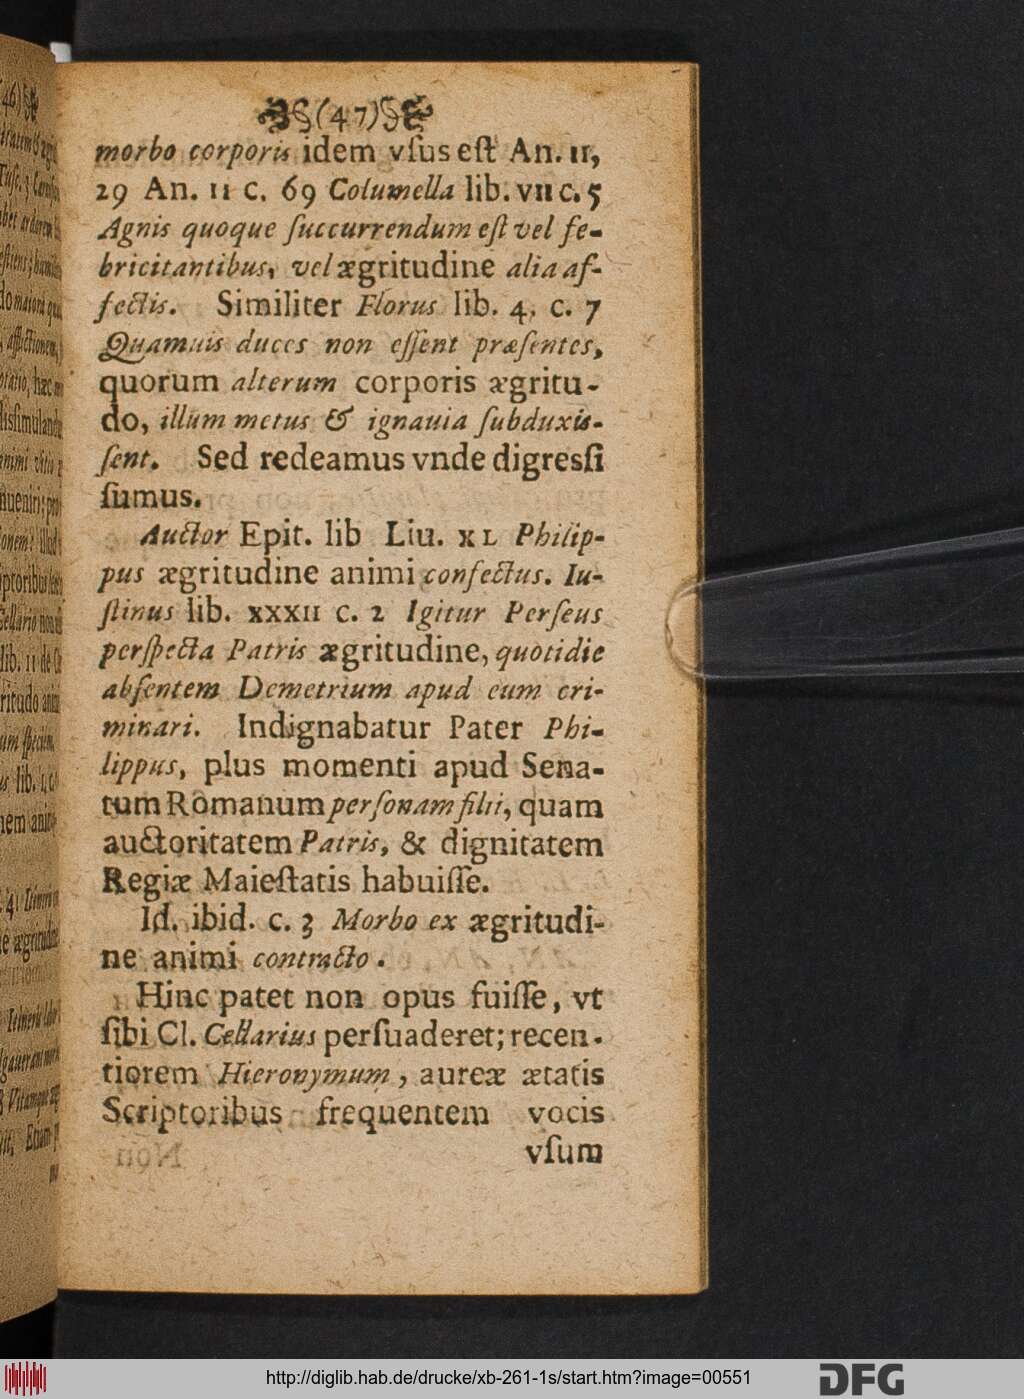 §(47)§
morbo corporis idem vſus eſt An. 11,
29 An. 11 c. 69 Columella lib. vii c. 5
Agnis quoque ſuccurrendum eſt vel fe-
bricitantibus, vel ægritudine alia af-
fectis. Similiter Florus lib. 4. c. 7
Quamuis duces non eſſent præſentes,
quorum alterum corporis ægritu-
do, illum metus & ignauia ſubduxis-
ſent. Sed redeamus vnde digreſſi
ſumus.
Auctor Epit. lib Liu. XL Philip-
pus ægritudine animi confectus. Iu-
ſtinus lib. xxxii c. 2 Igitur Perſeus
perſpecta Patris ægritudine, quotidie
abſentem Demetrium apud eum cri-
minari. Indignabatur Pater Phi-
lippus, plus momenti apud Sena-
tum Romanum perſonam filii, quam
auctoritatem Patris, & dignitatem
Regiæ Maieſtatis habuiſſe.
Id. ibid. c. 3 Morbo ex ægritudi-
ne animi contracto.
Hinc patet non opus fuiſſe, vt
ſibi Cl. Cellarius perſuaderet; recen-
tiorem Hieronymum, aureæ ætatis
Scriptoribus frequentem vocis
vſum
http://diglib.hab.de/drucke/xb-261-1s/start.htm?image=00551
DFG